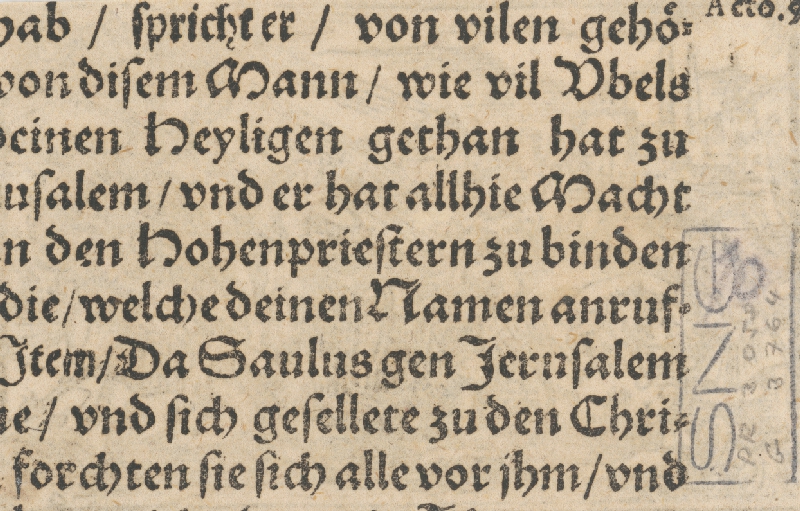 hab / sprichter / von vilen gehö- Acto. 9
von disem Mann / wie vil Vbels
deinen Heyligen gethan hat zu
usalem / vnd er hat allhie Macht
n den Hohenpriestern zu binden
die / welche deinen Namen anruf-
Item / Da Saulus gen Jerusalem
me / vnd sich gesellete zu den Chri-
forchten sie sich alle vor jhm / vnd
SNG